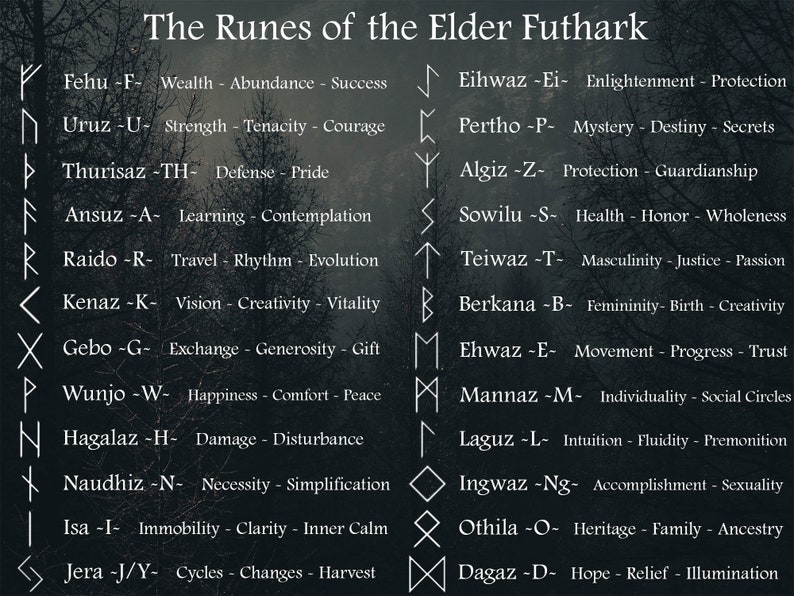 The Runes of the Elder Futhark
ᚠ Fehu ~F~ Wealth - Abundance - Success
ᚢ Uruz ~U~ Strength - Tenacity - Courage
ᚦ Thurisaz ~TH~ Defense - Pride
ᚨ Ansuz ~A~ Learning - Contemplation
ᚱ Raido ~R~ Travel - Rhythm - Evolution
ᚲ Kenaz ~K~ Vision - Creativity - Vitality
ᚷ Gebo ~G~ Exchange - Generosity - Gift
ᚹ Wunjo ~W~ Happiness - Comfort - Peace
ᚺ Hagalaz ~H~ Damage - Disturbance
ᚾ Naudhiz ~N~ Necessity - Simplification
ᛁ Isa ~I~ Immobility - Clarity - Inner Calm
ᛃ Jera ~J/Y~ Cycles - Changes - Harvest
ᛇ Eihwaz ~Ei~ Enlightenment - Protection
ᛈ Pertho ~P~ Mystery - Destiny - Secrets
ᛉ Algiz ~Z~ Protection - Guardianship
ᛊ Sowilu ~S~ Health - Honor - Wholeness
ᛏ Teiwaz ~T~ Masculinity - Justice - Passion
ᛒ Berkana ~B~ Femininity- Birth - Creativity
ᛖ Ehwaz ~E~ Movement - Progress - Trust
ᛗ Mannaz ~M~ Individuality - Social Circles
ᛚ Laguz ~L~ Intuition - Fluidity - Premonition
ᛜ Ingwaz ~Ng~ Accomplishment - Sexuality
ᛟ Othila ~O~ Heritage - Family - Ancestry
ᛞ Dagaz ~D~ Hope - Relief - Illumination